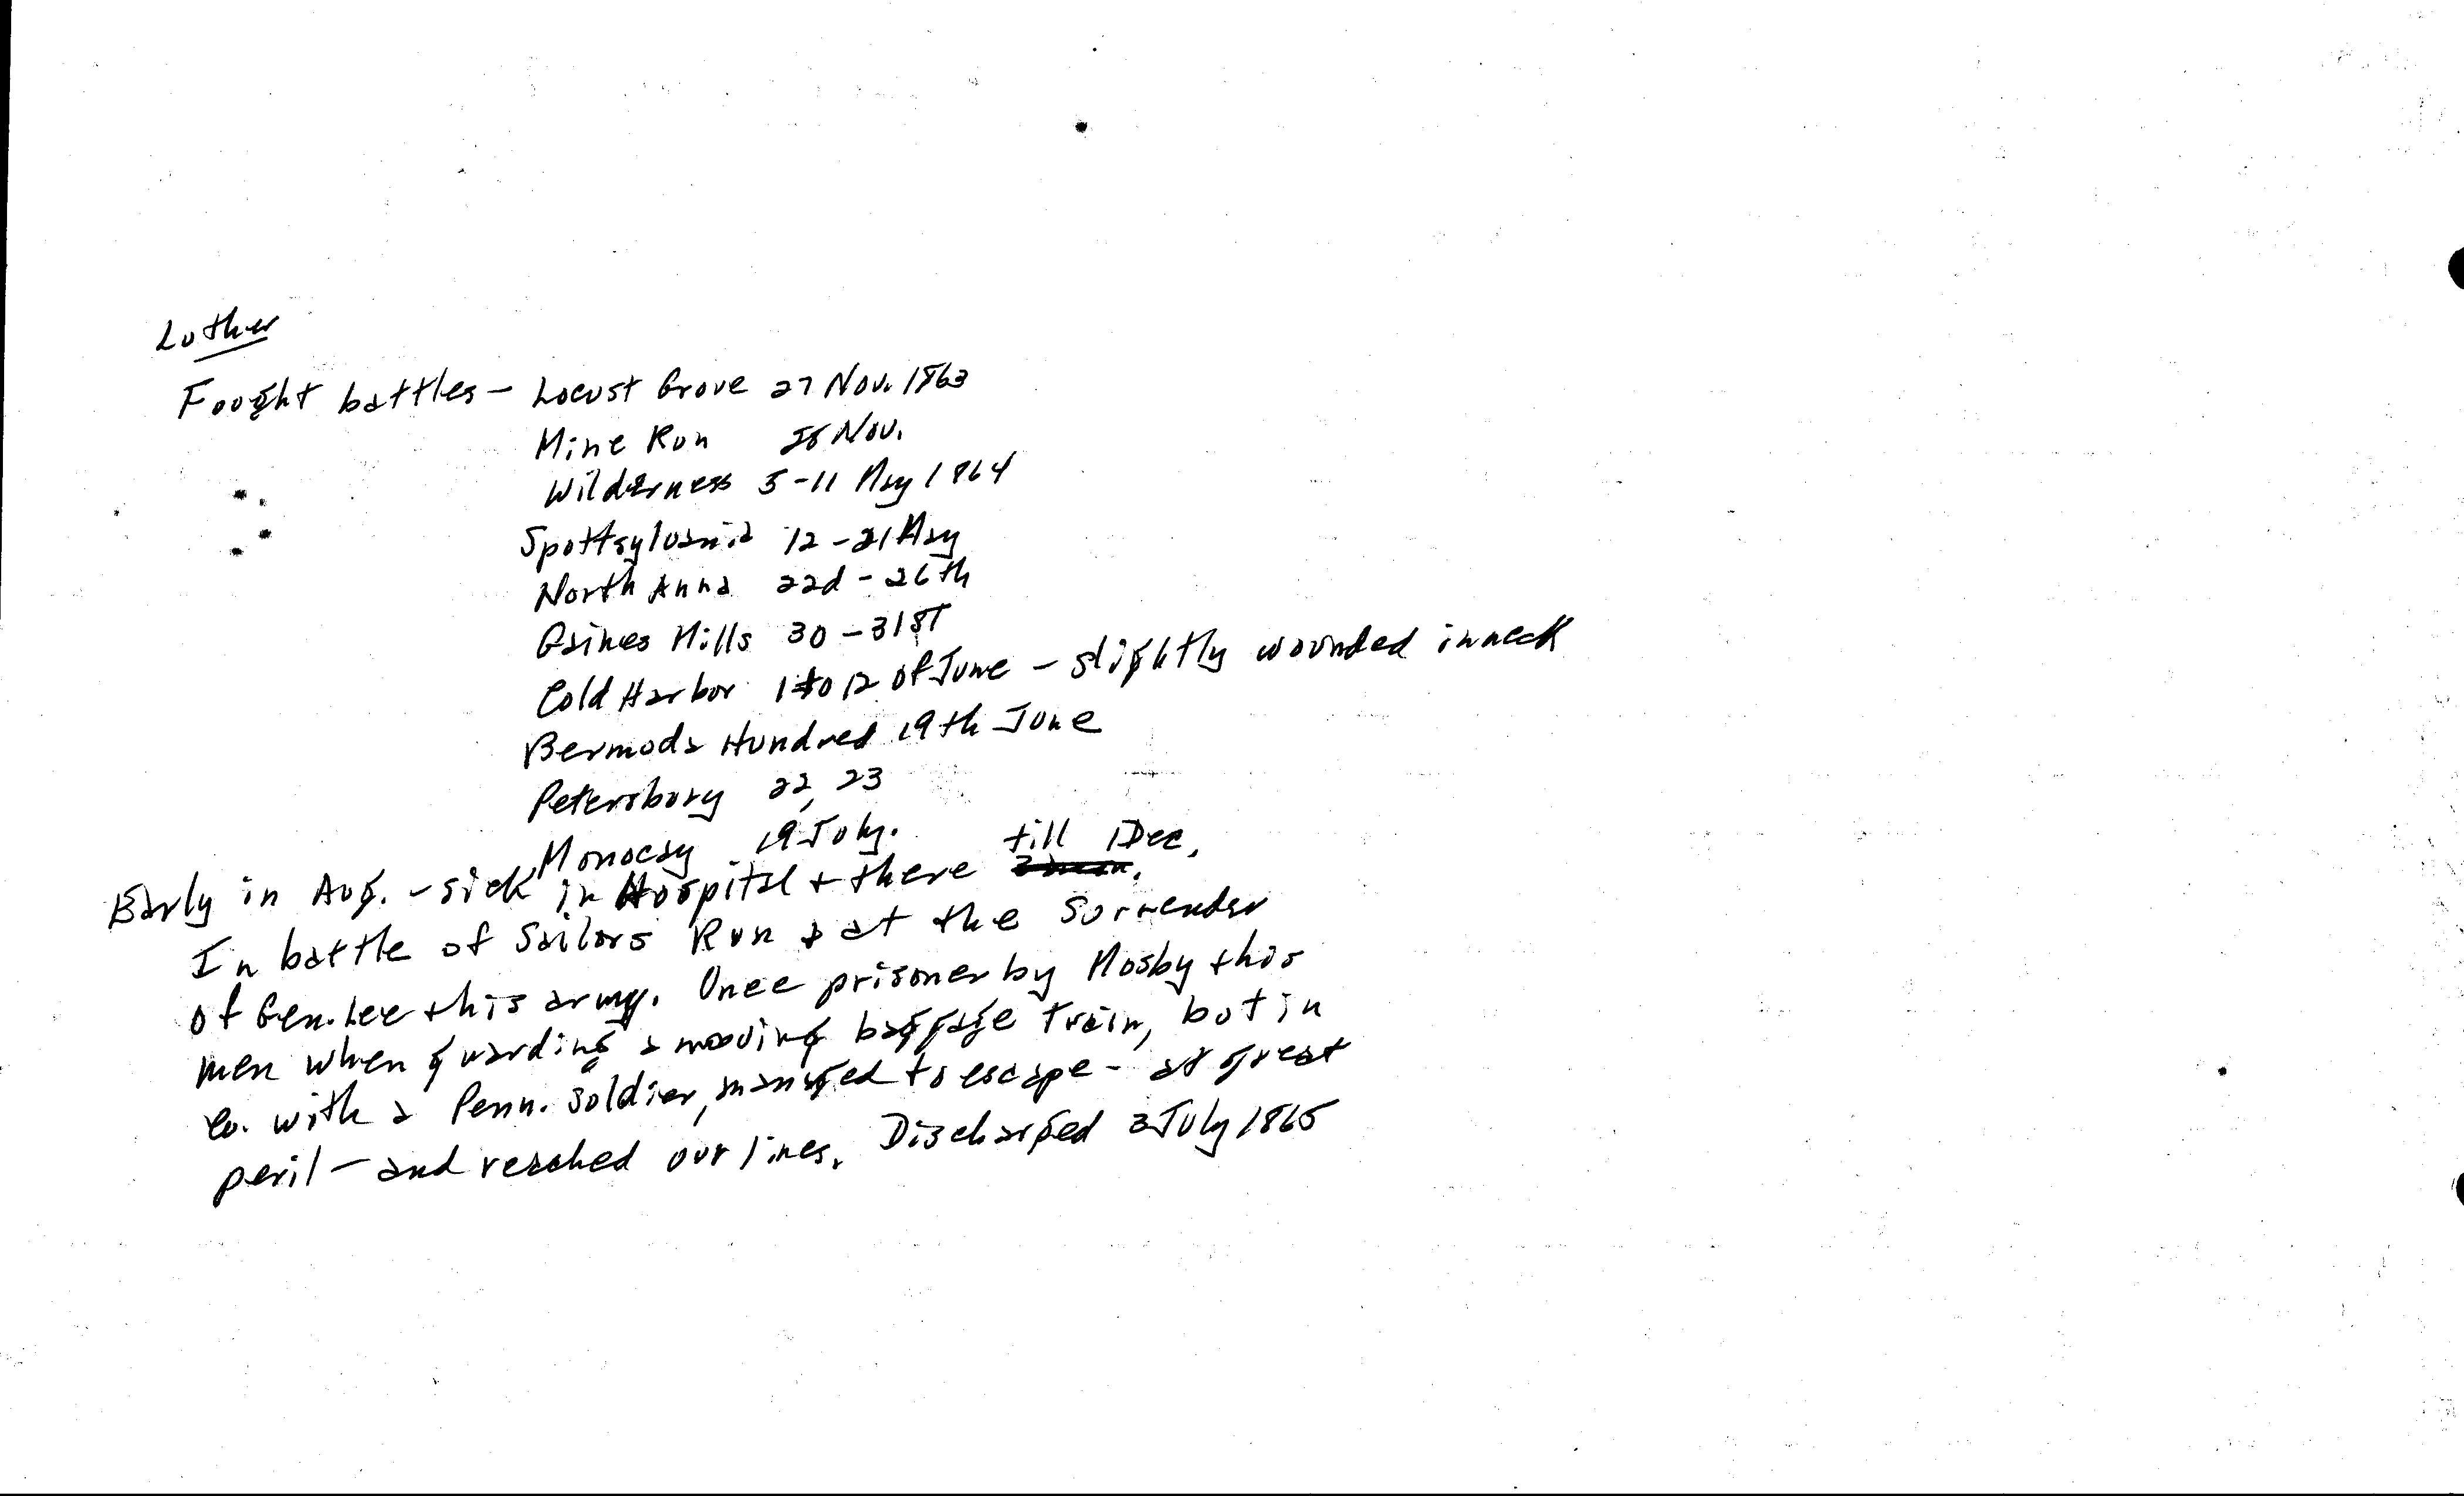 Luther
Fought battles - Locust Grove 27 Nov. 1863
Mine Run 28 Nov.
Wilderness 5-11 May 1864
Spottsylvania 12-21 May
North Anna 22d - 26th
Gaines Mills 30-31st
Cold Harbor 1 to 12 of June - slightly wounded in neck
Bermuda Hundred 19th June
Petersburg 22, 23
Monocay 19 July.
Early in Aug. - sick in Hospital + there till 1 Dec.
In battle of Sailors Run + at the surrender
of Gen. Lee + his army. Once prisoner by Mosby + his
men when guarding a mooving baggage train, but in
Co. with a Penn. soldier, managed to escape - at great
peril - and reached our lines. Discharged 3 July 1865